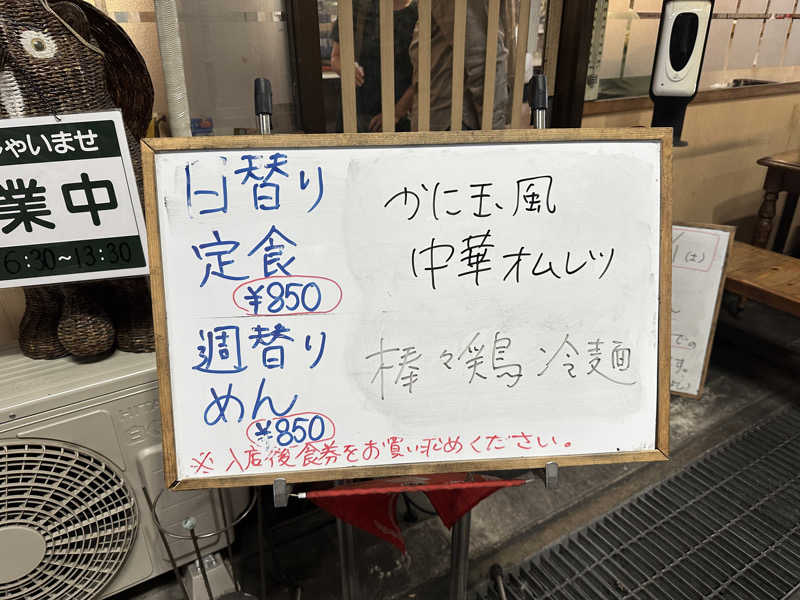 ゃいませ
業中
6:30~13:30
日替り
定食
¥850
週替り
めん
¥850
かに玉風
中華オムレツ
棒々鶏冷麺
※入店後食券をお買い求めください。
(土)